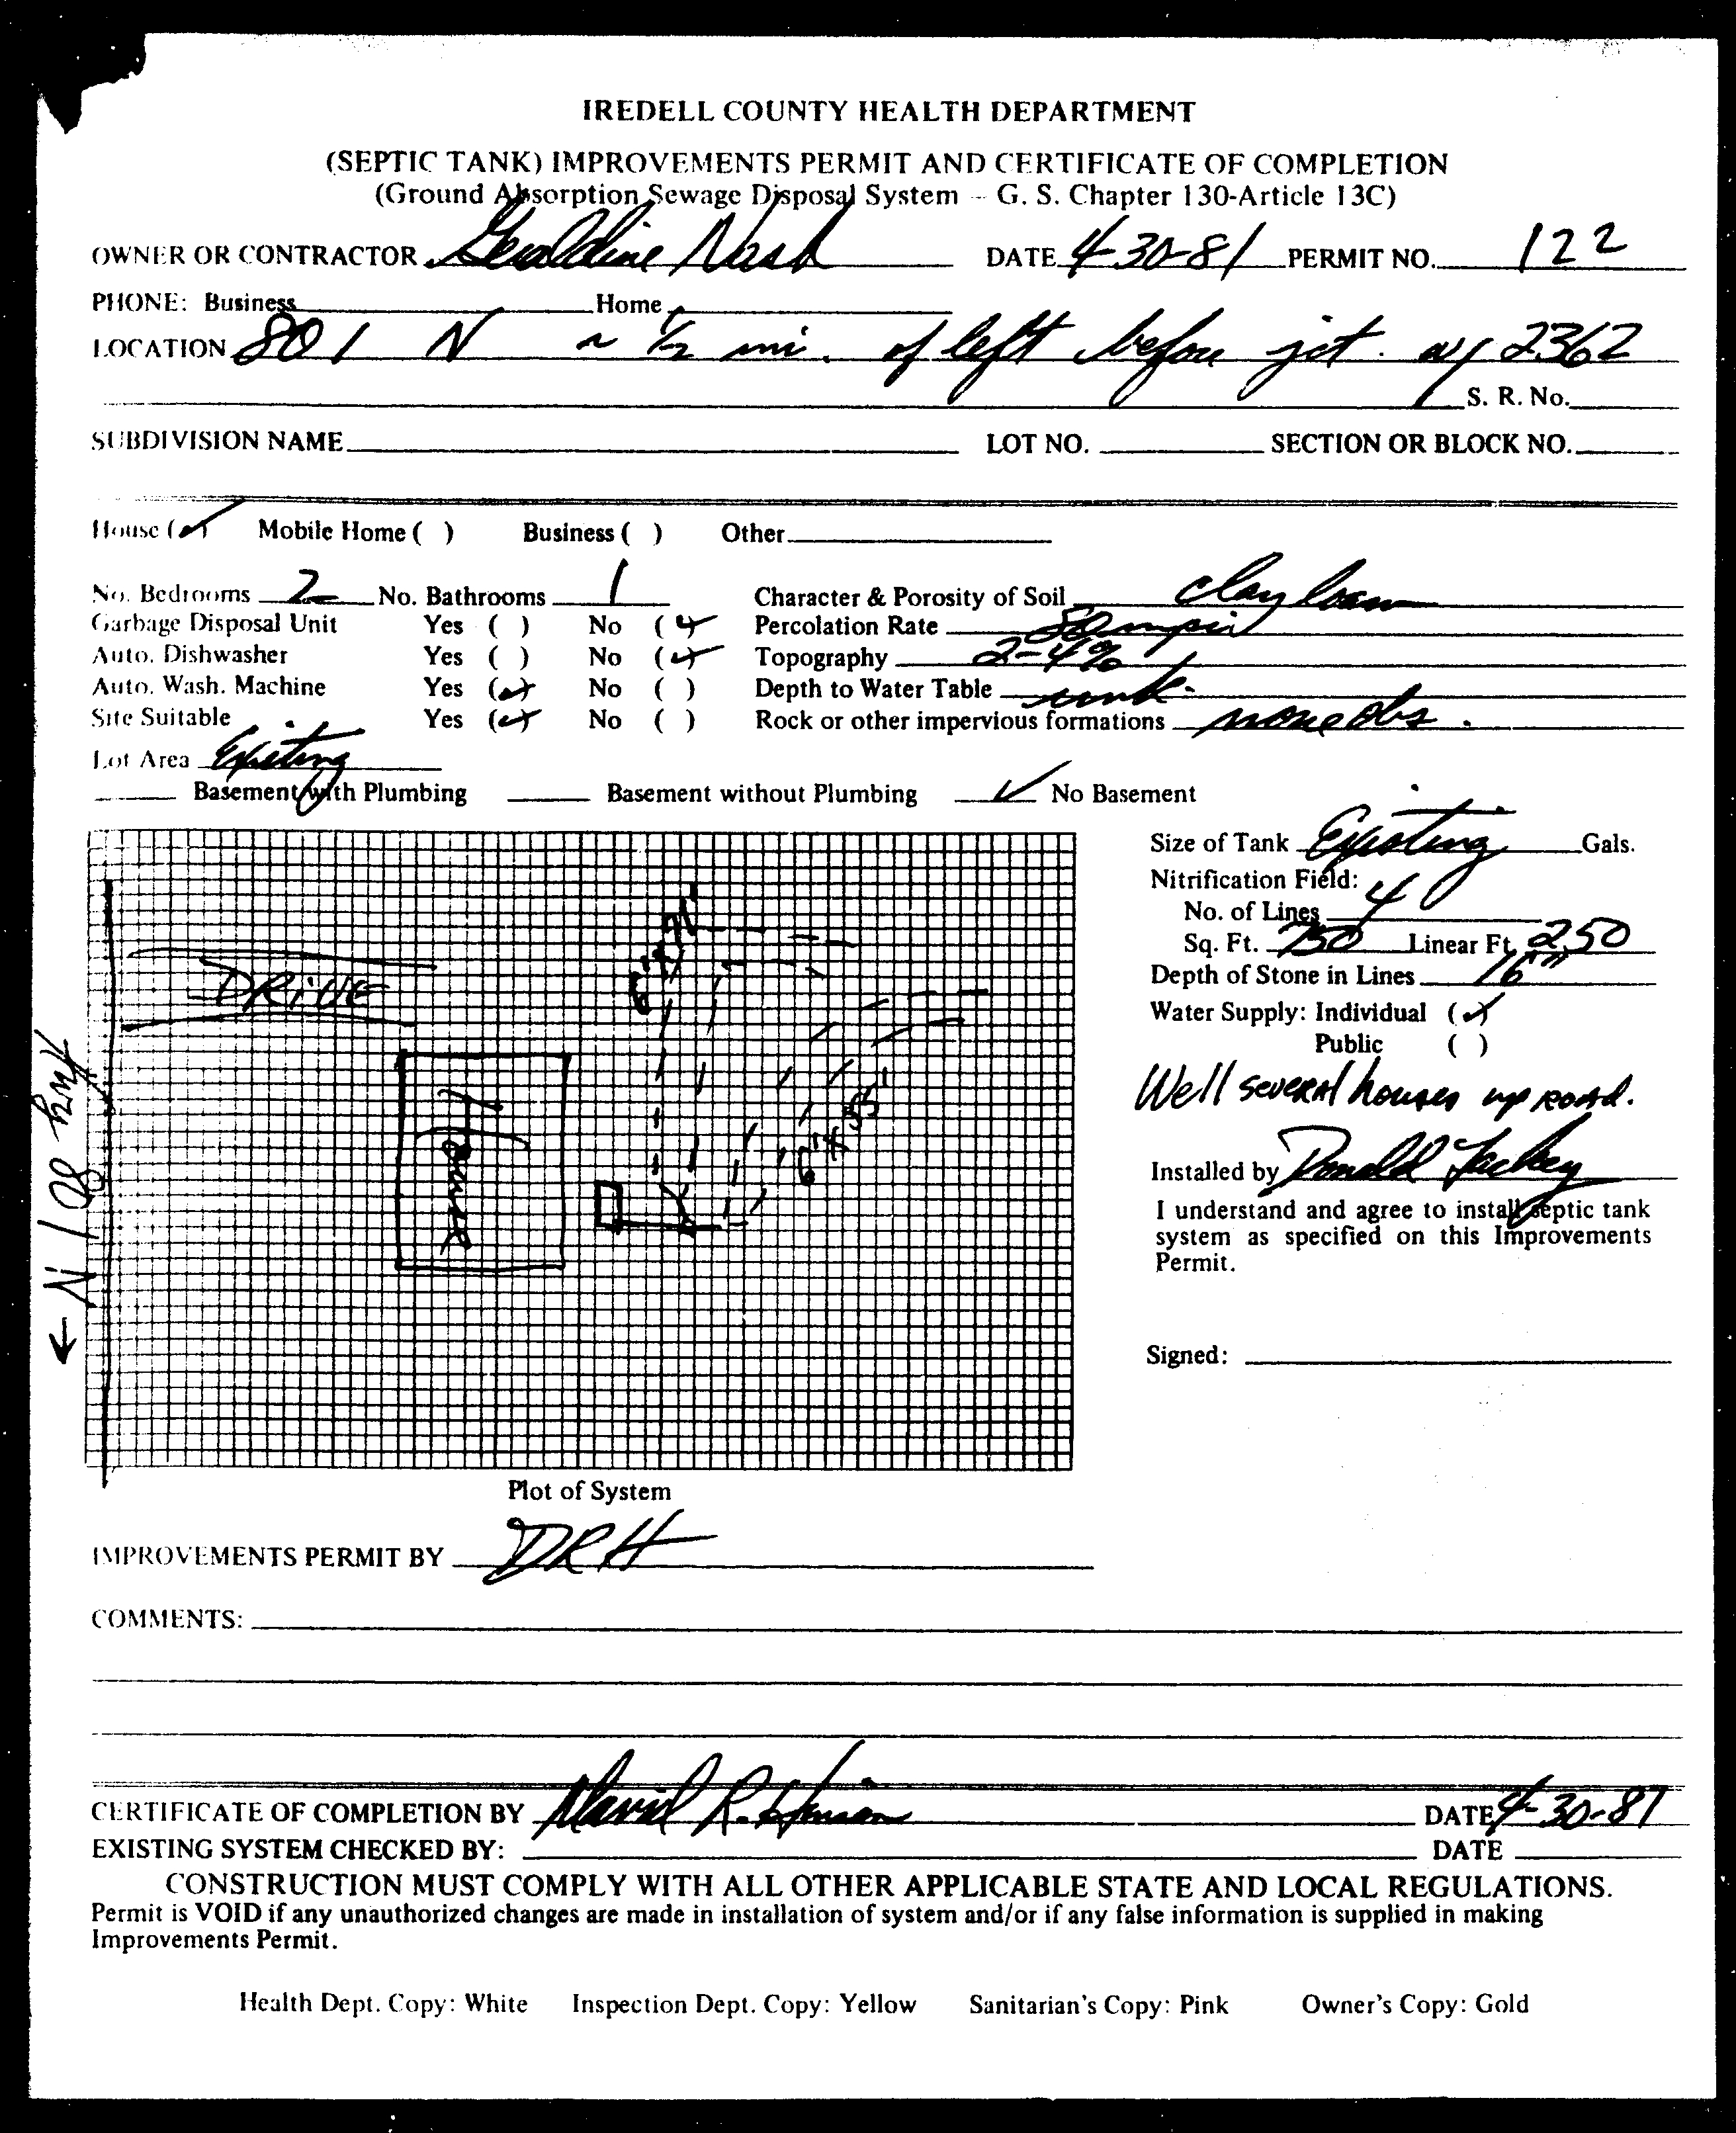 IREDELL COUNTY HEALTH DEPARTMENT
(SEPTIC TANK) IMPROVEMENTS PERMIT AND CERTIFICATE OF COMPLETION
(Ground Absorption Sewage Disposal System - G. S. Chapter 130-Article 13C)
OWNER OR CONTRACTOR Geraldine Nash DATE 4-30-81 PERMIT NO. 122
PHONE: Business Home
LOCATION 801 N ~ 1/2 mi. of left before jct. w/ 2362
S. R. No.
SUBDIVISION NAME LOT NO. SECTION OR BLOCK NO.
House (✓) Mobile Home ( ) Business ( ) Other
No. Bedrooms 2 No. Bathrooms 1 Character & Porosity of Soil clay loam
Garbage Disposal Unit Yes ( ) No (✓) Percolation Rate 50 mpi
Auto. Dishwasher Yes ( ) No (✓) Topography 2-4%
Auto. Wash. Machine Yes (✓) No ( ) Depth to Water Table unk.
Site Suitable Yes (✓) No ( ) Rock or other impervious formations none obs.
Lot Area Existing
Basement with Plumbing Basement without Plumbing ✓ No Basement
Size of Tank Existing Gals.
Nitrification Field:
No. of Lines 4
Sq. Ft. 750 Linear Ft. 250
Depth of Stone in Lines 16"
Water Supply: Individual (✓)
Public ( )
Well several houses up road.
Installed by Donald Lackey
I understand and agree to install septic tank
system as specified on this Improvements
Permit.
Signed:
DRIVE
House
6' x 71'
6' x 55'
← N 801 Hwy
Plot of System
IMPROVEMENTS PERMIT BY DRH
COMMENTS:
CERTIFICATE OF COMPLETION BY David R. DATE 4-30-81
EXISTING SYSTEM CHECKED BY: DATE
CONSTRUCTION MUST COMPLY WITH ALL OTHER APPLICABLE STATE AND LOCAL REGULATIONS.
Permit is VOID if any unauthorized changes are made in installation of system and/or if any false information is supplied in making
Improvements Permit.
Health Dept. Copy: White Inspection Dept. Copy: Yellow Sanitarian's Copy: Pink Owner's Copy: Gold